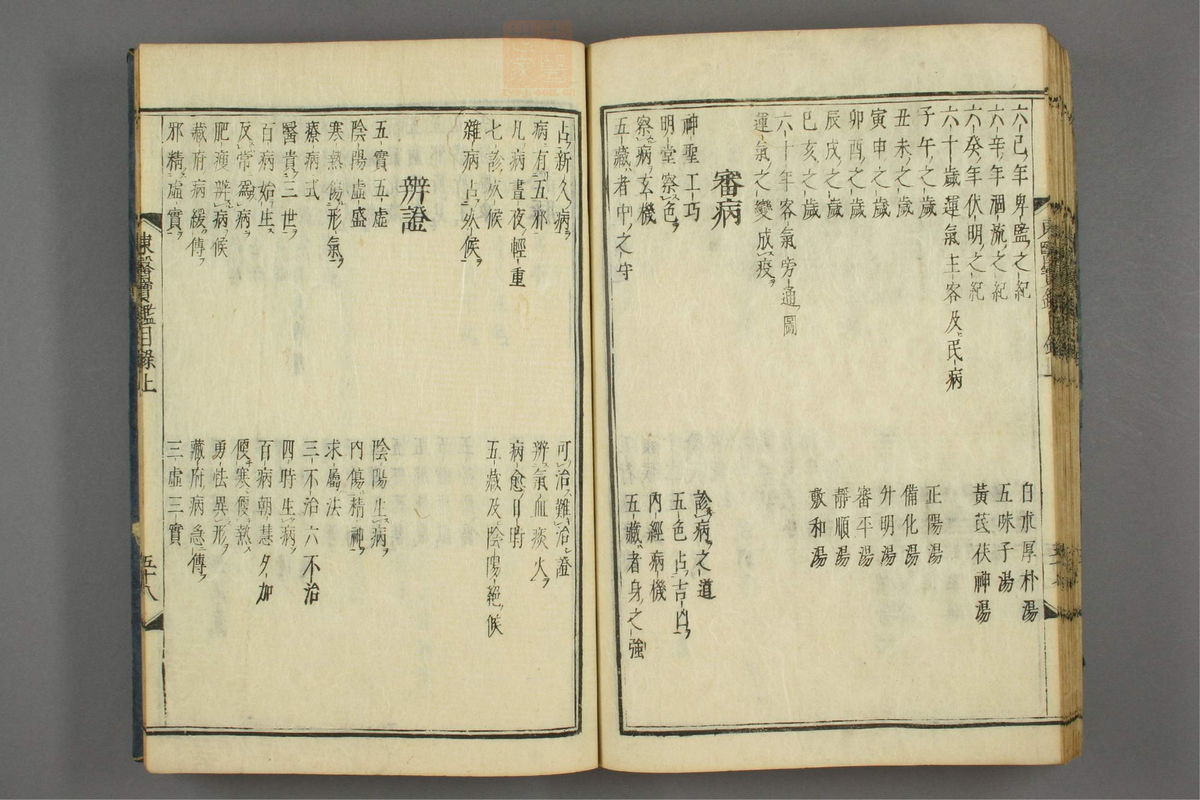 六己年卑監之紀
白朮厚朴湯
六辛年涸流之紀
五味子湯
六癸年伏明之紀
黃芪茯神湯
六十歲運氣主客及民病
子午之歲
正陽湯
丑未之歲
備化湯
寅申之歲
升明湯
卯酉之歲
審平湯
辰戌之歲
靜順湯
巳亥之歲
敷和湯
六十年客氣旁通圖
運氣之變成疫
審病
神聖工巧
診病之道
明堂察色
五色占吉凶
察病玄機
內經病機
五藏者中之守
五藏者身之強
占新久病
可治難治證
病有五邪
辨氣血痰火
凡病晝夜輕重
病愈日時
七診㱡候
五藏及陰陽絕候
雜病占㱡候
辨證
五實五虛
陰陽生病
陰陽虛盛
內傷精神
寒熱傷形氣
求屬法
療病式
三不治六不治
醫貴三世
四時生病
百病始生
百病朝慧夕加
反常爲病
便寒便熱
肥瘦辨病候
勇怯異形
藏府病緩傳
藏府病急傳
邪精虛實
三虛三實
東醫寶鑑目錄上
五十八